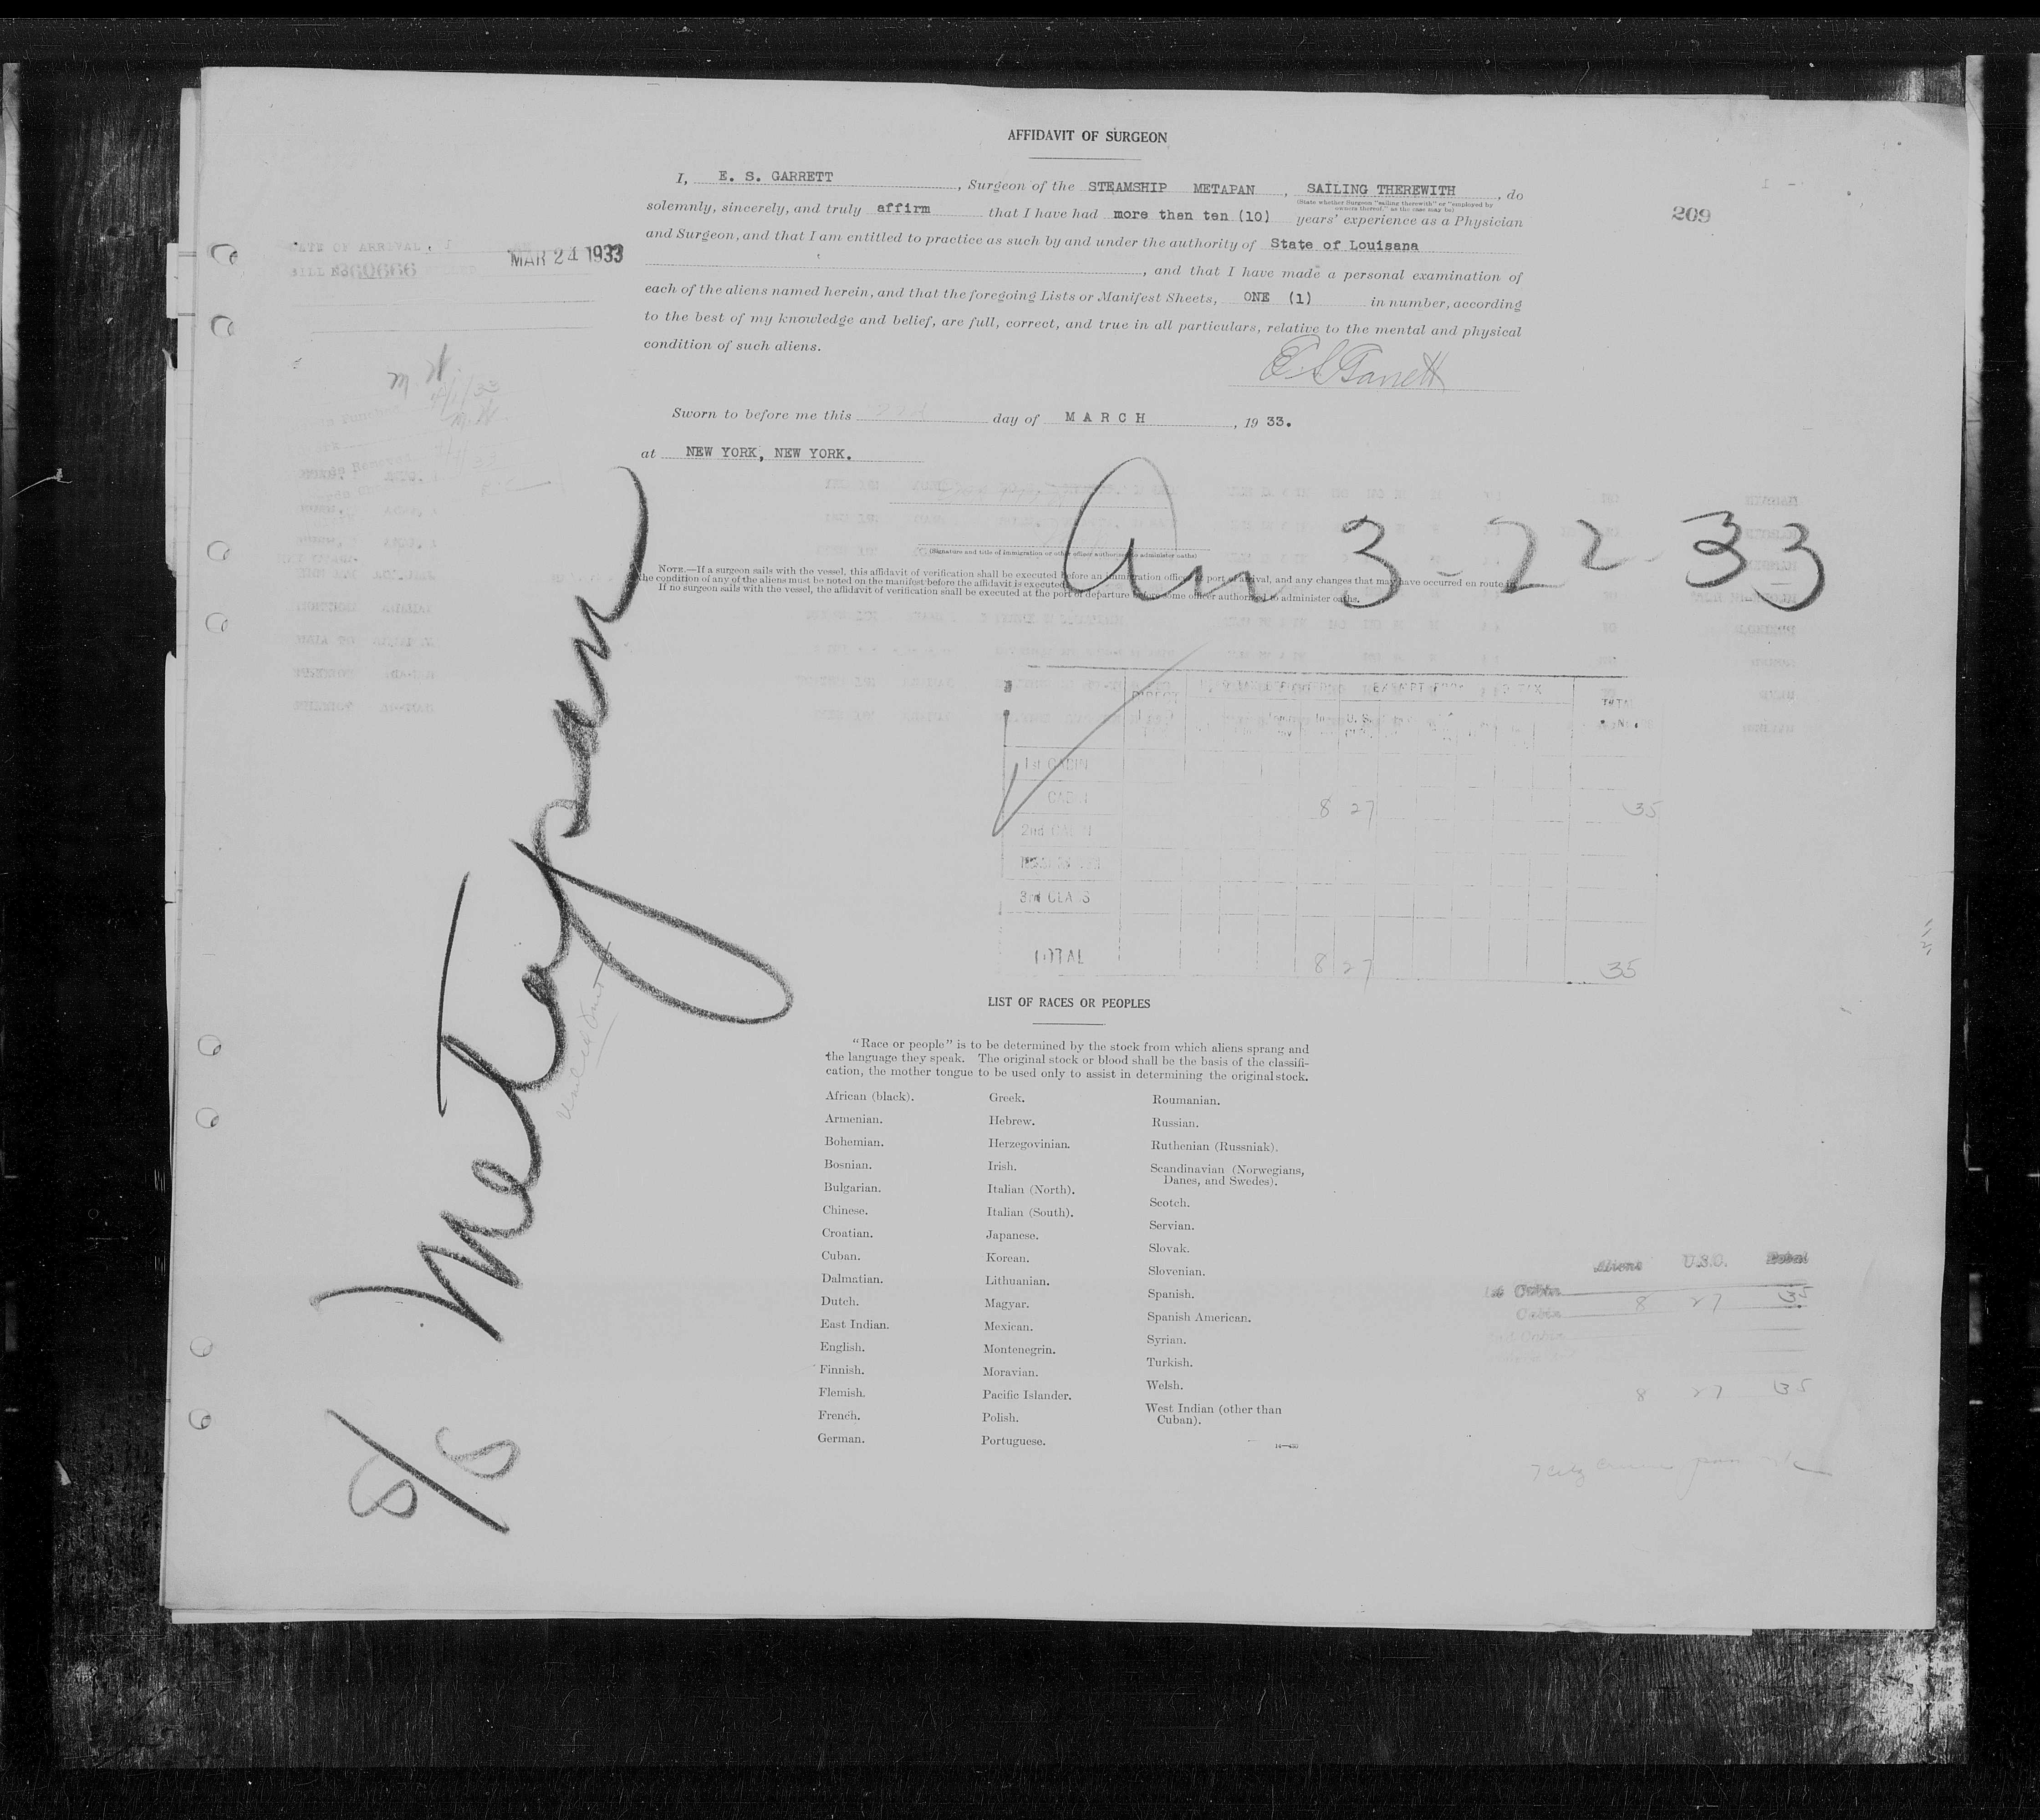 AFFIDAVIT OF SURGEON
I, E. S. GARRETT, Surgeon of the STEAMSHIP METAPAN, SAILING THEREWITH, do
(State whether Surgeon "sailing therewith" or "employed by
owners thereof," as the case may be)
solemnly, sincerely, and truly affirm that I have had more than ten (10) years' experience as a Physician
and Surgeon, and that I am entitled to practice as such by and under the authority of State of Louisana
, and that I have made a personal examination of
each of the aliens named herein, and that the foregoing Lists or Manifest Sheets, ONE (1) in number, according
to the best of my knowledge and belief, are full, correct, and true in all particulars, relative to the mental and physical
condition of such aliens.
E S Garrett
Sworn to before me this 22d day of MARCH, 19 33.
at NEW YORK, NEW YORK.
(Signature and title of immigration or other officer authorized to administer oaths)
NOTE.—If a surgeon sails with the vessel, this affidavit of verification shall be executed before an immigration officer at port of arrival, and any changes that may have occurred en route in
the condition of any of the aliens must be noted on the manifest before the affidavit is executed.
If no surgeon sails with the vessel, the affidavit of verification shall be executed at the port of departure before some officer authorized to administer oaths.
209
DATE OF ARRIVAL
MAR 24 1933
360666
4/1/33
An 3-22-33
S/S Metapan
TOTAL
1st CABIN
CABIN 8 27 35
2nd CABIN
3rd CLASS
TOTAL 8 27 35
LIST OF RACES OR PEOPLES
"Race or people" is to be determined by the stock from which aliens sprang and
the language they speak. The original stock or blood shall be the basis of the classifi-
cation, the mother tongue to be used only to assist in determining the original stock.
African (black).
Armenian.
Bohemian.
Bosnian.
Bulgarian.
Chinese.
Croatian.
Cuban.
Dalmatian.
Dutch.
East Indian.
English.
Finnish.
Flemish.
French.
German.
Greek.
Hebrew.
Herzegovinian.
Irish.
Italian (North).
Italian (South).
Japanese.
Korean.
Lithuanian.
Magyar.
Mexican.
Montenegrin.
Moravian.
Pacific Islander.
Polish.
Portuguese.
Roumanian.
Russian.
Ruthenian (Russniak).
Scandinavian (Norwegians,
Danes, and Swedes).
Scotch.
Servian.
Slovak.
Slovenian.
Spanish.
Spanish American.
Syrian.
Turkish.
Welsh.
West Indian (other than
Cuban).
Aliens U.S.C. Total
1st Cabin
Cabin 8 27 35
2nd Cabin
8 27 35